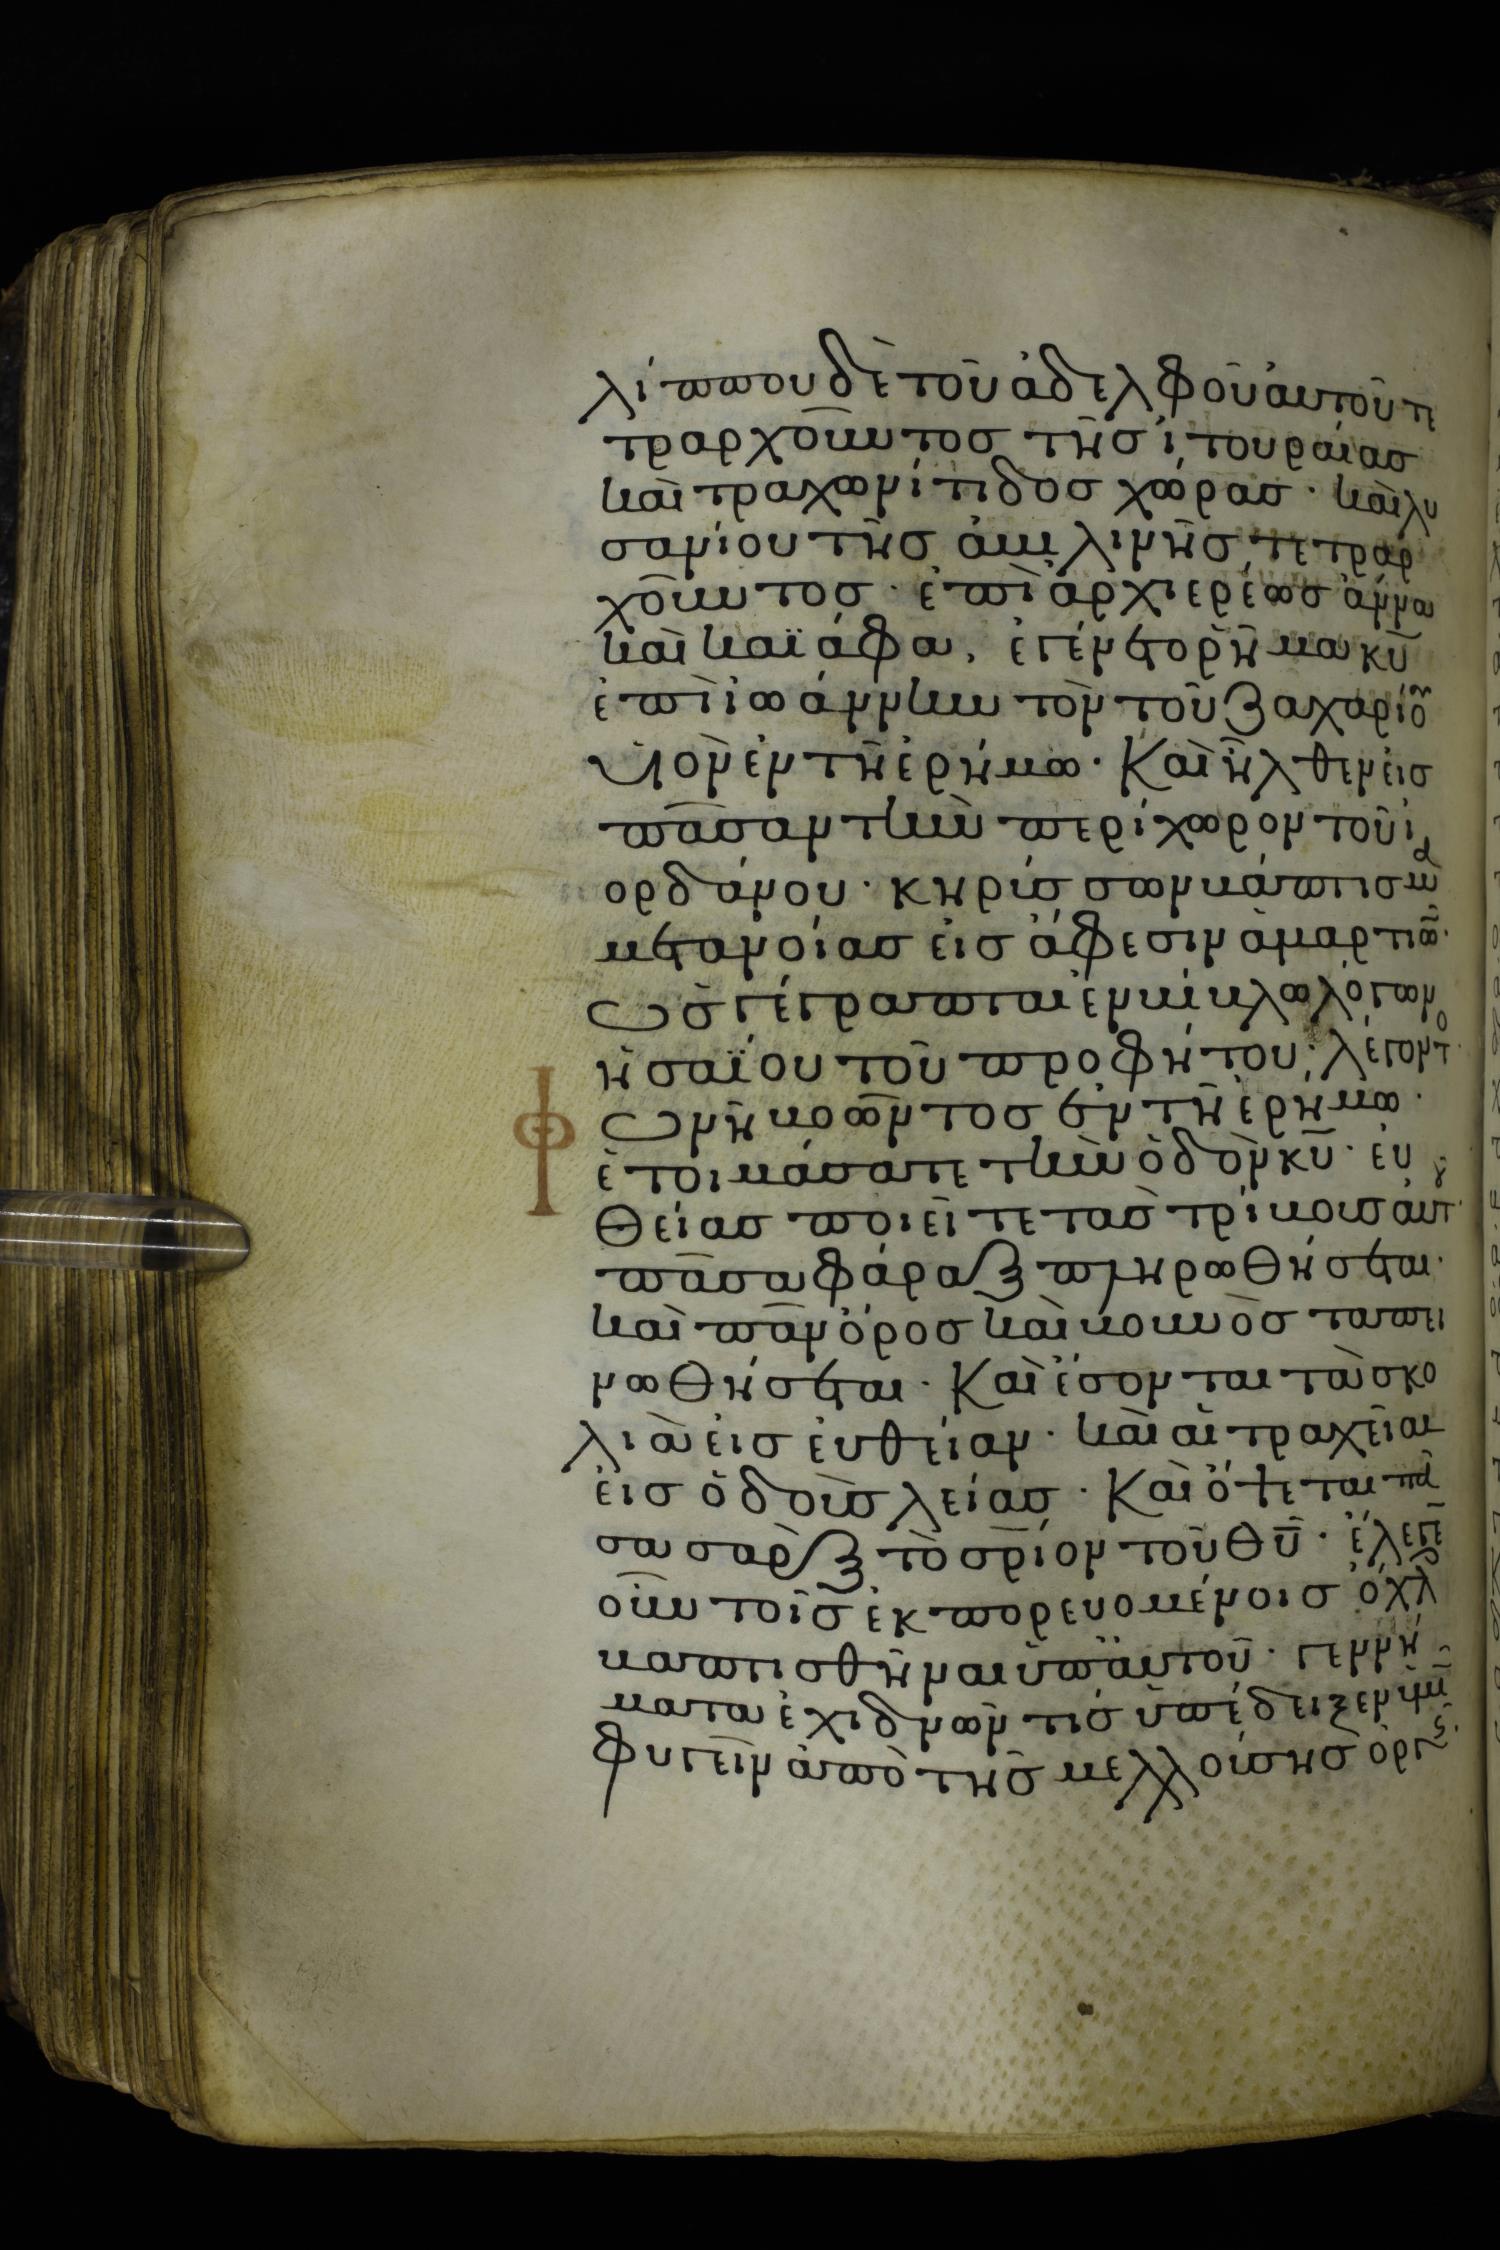 λίππου δὲ τοῦ ἀδελφοῦ αὐτοῦ τε
τραρχοῦντος τῆς ἰτουραίας
καὶ τραχωνίτιδος χώρας · καὶ λυ
σανίου τῆς ἀβιλινῆς τετραρ
χοῦντος · ἐπὶ ἀρχιερέως ἄννα
καὶ καϊάφα, ἐγένετο ῥῆμα κυ̅
ἐπὶ ἰωάννην τὸν τοῦ ζαχαρίου
υἱὸν ἐν τῆ ἐρήμω · Καὶ ἦλθεν εἰς
πᾶσαν τὴν περίχωρον τοῦ ἰ
ορδάνου · κηρύσσων βάπτισμα
μετανοίας εἰς ἄφεσιν ἁμαρτιῶν ·
Ὡς γέγραπται ἐν βίβλω λόγων
ἠσαΐου τοῦ προφήτου · λέγοντος ·
Φωνὴ βοῶντος ἐν τῆ ἐρήμω ·
ἑτοιμάσατε τὴν ὁδὸν κυ̅ · εὐ
θείας ποιεῖτε τὰς τρίβους αὐτοῦ ·
πᾶσα φάραγξ πληρωθήσεται ·
καὶ πᾶν ὄρος καὶ βουνὸς ταπει
νωθήσεται · Καὶ ἔσονται τὰ σκο
λιὰ εἰς εὐθείαν · καὶ αἱ τραχεῖαι
εἰς ὁδοὺς λείας · Καὶ ὄψεται πᾶ
σα σὰρξ τὸ σρ̅ίον τοῦ θυ̅ · ἔλεγεν
οὖν τοῖς ἐκπορευομένοις ὄχλοις
βαπτισθῆναι ὑπ' αὐτοῦ · γεννή
ματα ἐχιδνῶν τίς ὑπέδειξεν ὑμῖν
φυγεῖν ἀπὸ τῆς μελλούσης ὀργῆς ·